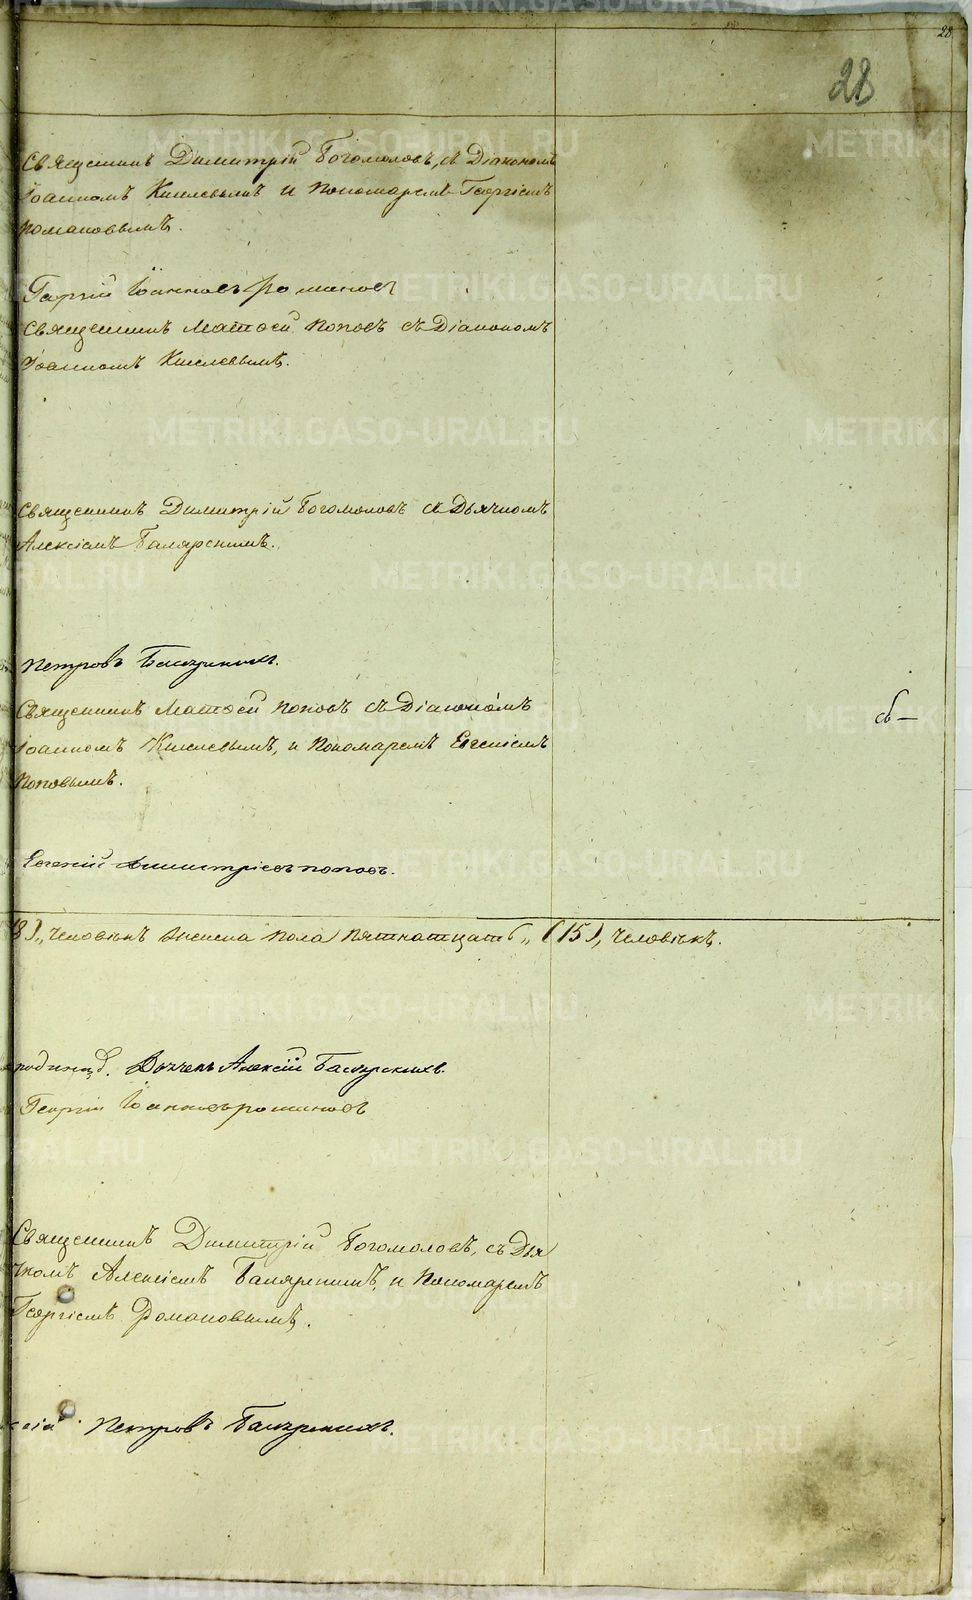 28
28
Священникъ Димитрій Богомоловъ, съ Діакономъ
Іоанномъ Киселевымъ и Пономаремъ Георгіемъ
Романовымъ.
Георгій Іоанновъ Романовъ
Священникъ Матѳей Поповъ съ Діакономъ
Іоанномъ Киселевымъ.
Священникъ Димитрій Богомоловъ съ Дьячкомъ
Алексіемъ Баляркинымъ.
Петровъ
Священникъ Матѳей Поповъ съ Діакономъ
сь —
Іоанномъ Киселевымъ, и Пономаремъ Евгеніемъ
Поповымъ.
Евгеній Димитріевъ Поповъ.
8) „ человѣкъ женска пола пятнатцать „ (15) „ человѣкъ.
Алексій
Георгій Іоанновъ Романовъ
Священникъ Димитрій Богомоловъ, съ Дья
чкомъ Алексіемъ и Пономаремъ
Георгіемъ Романовымъ.
сій Петровъ
METRIKI.GASO-URAL.RU